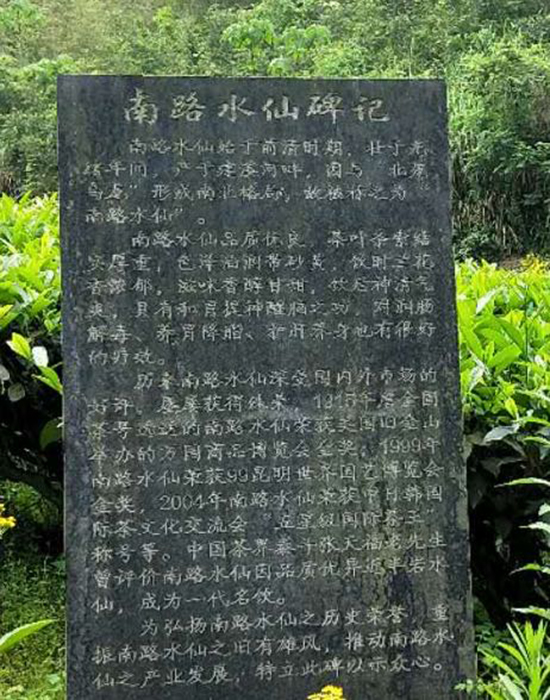 南路水仙碑记
南路水仙始于前清时期，壮于光
年间，产于 溪河畔，因与 北苑
乌龙”形成南北格局，故被称之为
南路水仙”。
南路水仙品质优良，茶叶条索结
实厚重，色泽油润带砂 ，饮时兰花
香浓郁，滋味香醇甘甜，饮后神清气
爽，具有和胃提神醒脑之功，对润肠
解毒、养胃降脂、护肝养身也有很好
的疗效。
历来南路水仙深受国内外市场的
好评，屡屡获得殊荣。1915年 全国
茶号选送的南路水仙荣获美国旧金山
举办的万国商品博览会金奖，1999年
南路水仙荣获99昆明世界园艺博览会
金奖，2004年南路水仙荣获中日韩国
际茶文化交流会“五星级国际茶王”
称号等。中国茶界泰斗张天福老先生
曾评价南路水仙因品质优异近半岩水
仙，成为一代名饮。
为弘扬南路水仙之历史荣誉，重
振南路水仙之旧有雄风，推动南路水
仙之产业发展，特立此碑以示众心。